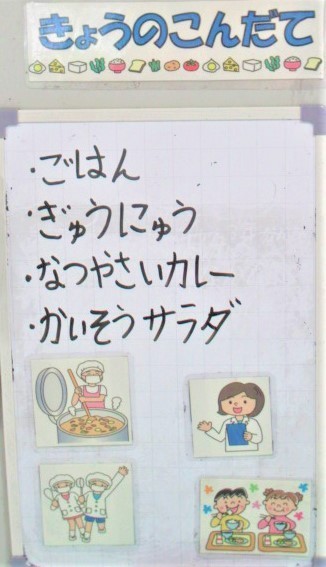 きょうのこんだて
・ごはん
・ぎゅうにゅう
・なつやさいカレー
・かいそうサラダ